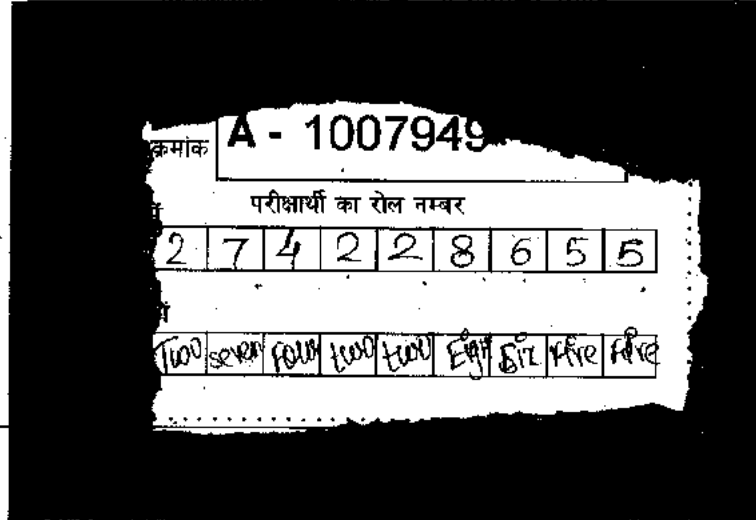 क्रमांक A - 1007949
परीक्षार्थी का रोल नम्बर
2 7 4 2 2 8 6 5 5
Two seven Four two two Eigh Six Five Five